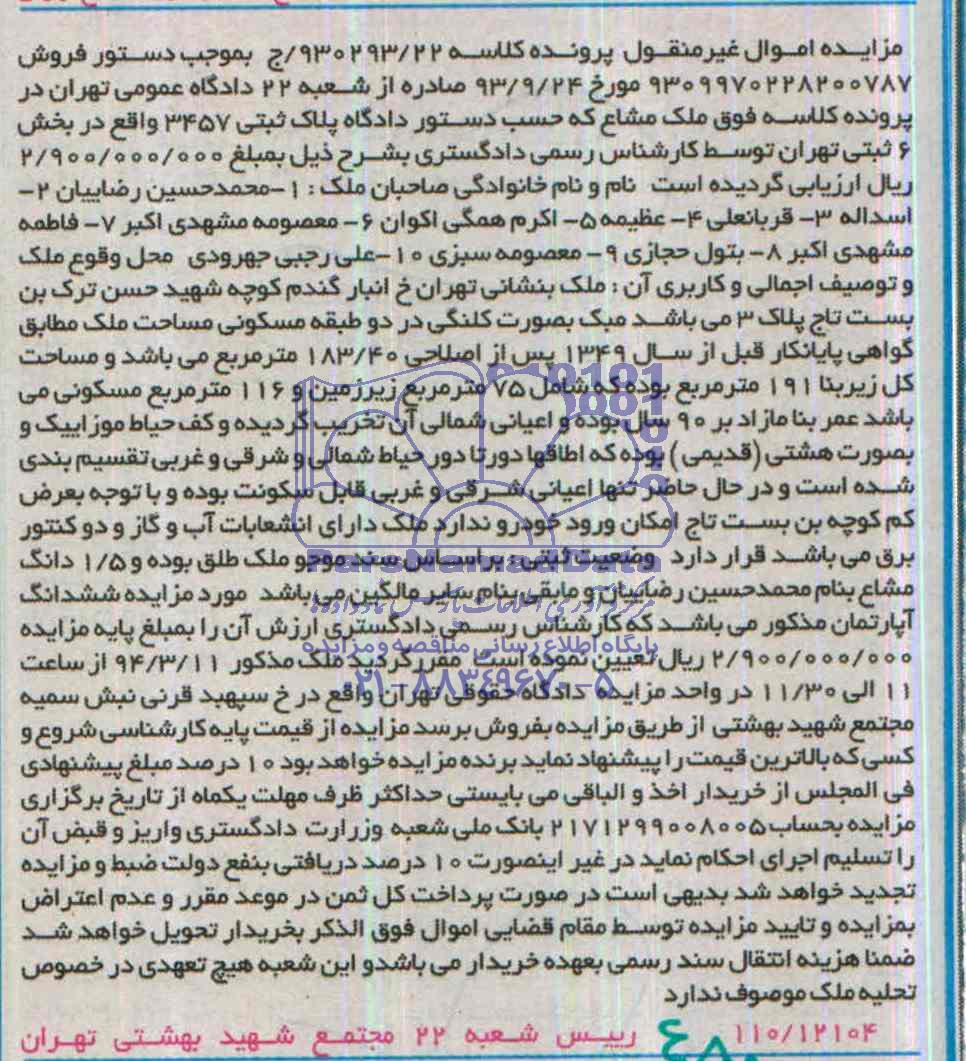 مزایده اموال غیرمنقول پرونده کلاسه ۹۳۰۲۹۳/۲۲/ج بموجب دستور فروش
۹۳۰۹۹۷۰۲۲۸۲۰۰۷۸۷ مورخ ۹۳/۹/۲۴ صادره از شعبه ۲۲ دادگاه عمومی تهران در
پرونده کلاسه فوق ملک مشاع که حسب دستور دادگاه پلاک ثبتی ۳۴۵۷ واقع در بخش
۶ ثبتی تهران توسط کارشناس رسمی دادگستری بشرح ذیل بمبلغ ۲/۹۰۰/۰۰۰/۰۰۰
ریال ارزیابی گردیده است نام و نام خانوادگی صاحبان ملک : ۱-محمدحسین رضاییان ۲-
اسداله ۳- قربانعلی ۴- عظیمه ۵- اکرم همگی اکوان ۶- معصومه مشهدی اکبر ۷- فاطمه
مشهدی اکبر ۸- بتول حجازی ۹- معصومه سبزی ۱۰-علی رجبی جهرودی محل وقوع ملک
و توصیف اجمالی و کاربری آن : ملک بنشانی تهران خ انبار گندم کوچه شهید حسن ترک بن
بست تاج پلاک ۳ می باشد مبک بصورت کلنگی در دو طبقه مسکونی مساحت ملک مطابق
گواهی پایانکار قبل از سال ۱۳۴۹ پس از اصلاحی ۱۸۳/۴۰ مترمربع می باشد و مساحت
کل زیربنا ۱۹۱ مترمربع بوده که شامل ۷۵ مترمربع زیرزمین و ۱۱۶ مترمربع مسکونی می
باشد عمر بنا مازاد بر ۹۰ سال بوده و اعیانی شمالی آن تخریب گردیده و کف حیاط موزاییک و
بصورت هشتی (قدیمی) بوده که اطاقها دورتا دور حیاط شمالی و شرقی و غربی تقسیم بندی
شده است و در حال حاضر تنها اعیانی شرقی و غربی قابل سکونت بوده و با توجه بعرض
کم کوچه بن بست تاج امکان ورود خودرو ندارد ملک دارای انشعابات آب و گاز و دو کنتور
برق می باشد قرار دارد وضعیت ثبتی : براساس سند موجو ملک طلق بوده و ۱/۵ دانگ
مشاع بنام محمدحسین رضاییان و مابقی بنام سایر مالکین می باشد مورد مزایده ششدانگ
آپارتمان مذکور می باشد که کارشناس رسمی دادگستری ارزش آن را بمبلغ پایه مزایده
۲/۹۰۰/۰۰۰/۰۰۰ ریال تعیین نموده است مقرر گردید ملک مذکور ۹۴/۳/۱۱ از ساعت
۱۱ الی ۱۱/۳۰ در واحد مزایده دادگاه حقوقی تهران واقع در خ سپهبد قرنی نبش سمیه
مجتمع شهید بهشتی از طریق مزایده بفروش برسد مزایده از قیمت پایه کارشناسی شروع و
کسی که بالاترین قیمت را پیشنهاد نماید برنده مزایده خواهد بود ۱۰ درصد مبلغ پیشنهادی
فی المجلس از خریدار اخذ و الباقی می بایستی حداکثر ظرف مهلت یکماه از تاریخ برگزاری
مزایده بحساب ۲۱۷۱۲۹۹۰۰۸۰۰۵ بانک ملی شعبه وزرارت دادگستری واریز و قبض آن
را تسلیم اجرای احکام نماید در غیر اینصورت ۱۰ درصد دریافتی بنفع دولت ضبط و مزایده
تجدید خواهد شد بدیهی است در صورت پرداخت کل ثمن در موعد مقرر و عدم اعتراض
بمزایده و تایید مزایده توسط مقام قضایی اموال فوق الذکر بخریدار تحویل خواهد شد
ضمنا هزینه انتقال سند رسمی بعهده خریدار می باشدو این شعبه هیچ تعهدی در خصوص
تخلیه ملک موصوف ندارد
۱۱۰/۱۲۱۰۴ رییس شعبه ۲۲ مجتمع شهید بهشتی تهران
پایگاه اطلاع رسانی مناقصه و مزایده
۰۲۱-۸۸۳۴۹۶۷۰-۵